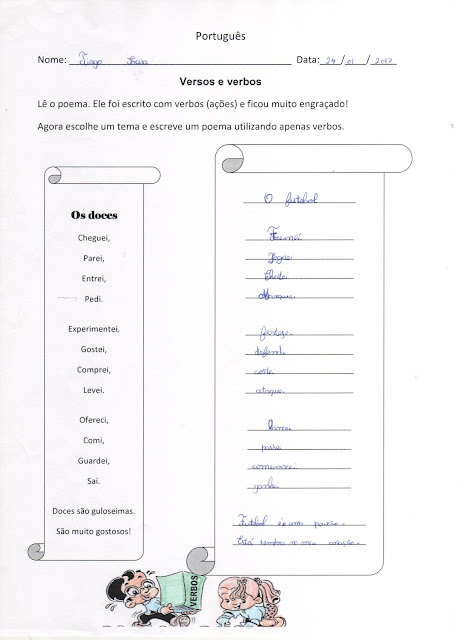 Português
Nome: Tiago Data: 24/01/2017
Versos e verbos
Lê o poema. Ele foi escrito com verbos (ações) e ficou muito engraçado!
Agora escolhe um tema e escreve um poema utilizando apenas verbos.
Os doces
Cheguei,
Parei,
Entrei,
Pedi.
Experimentei,
Gostei,
Comprei,
Levei.
Ofereci,
Comi,
Guardei,
Saí.
Doces são guloseimas.
São muito gostosos!
O futebol
Treinei
Joguei
Chutei
Marquei
festejei
defendi
corri
ataquei
parei
comemorei
ganhei
Futebol é uma paixão.
Está sempre no meu coração.
VERBOS